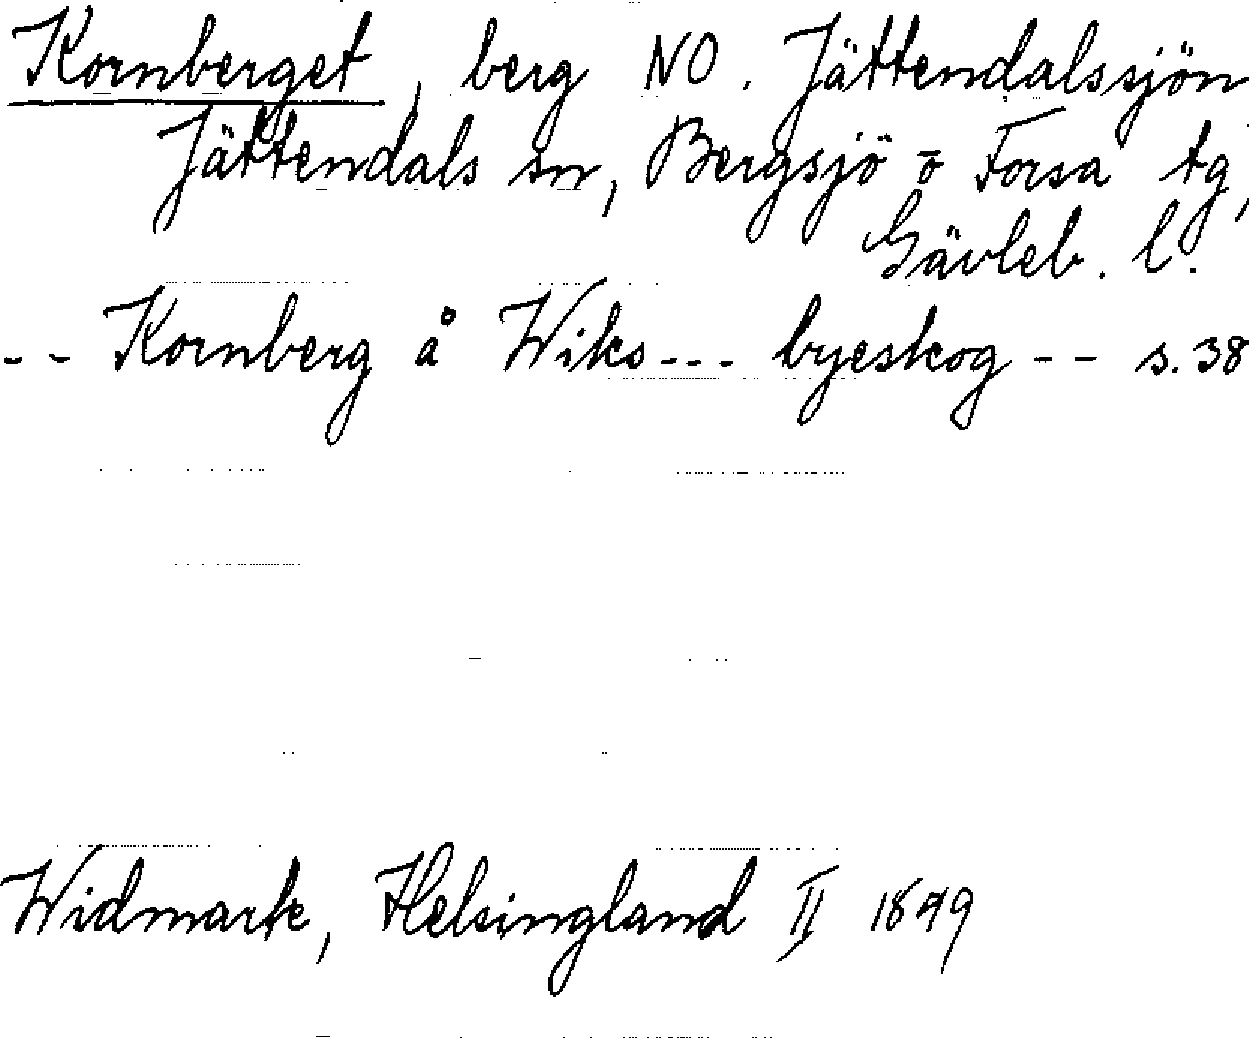 Kornberget, berg NO. Jättendalssjön
Jättendals sn, Bergsjö o Forsa tg,
Gävleb. l.
-- Kornberg å Wiks--- byeskog -- s. 38
Widmark, Helsingland II 1849